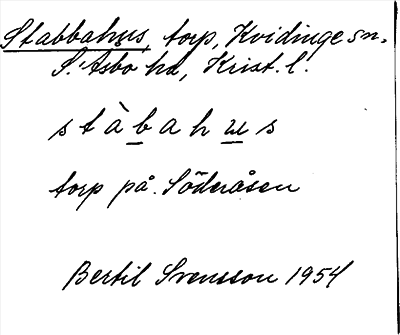 Stabbahus, torp, Kvidinge sn.
S. Åsbo hd, Krist. l.
s t à b a h u s
torp på Söderåsen
Bertil Svensson 1954